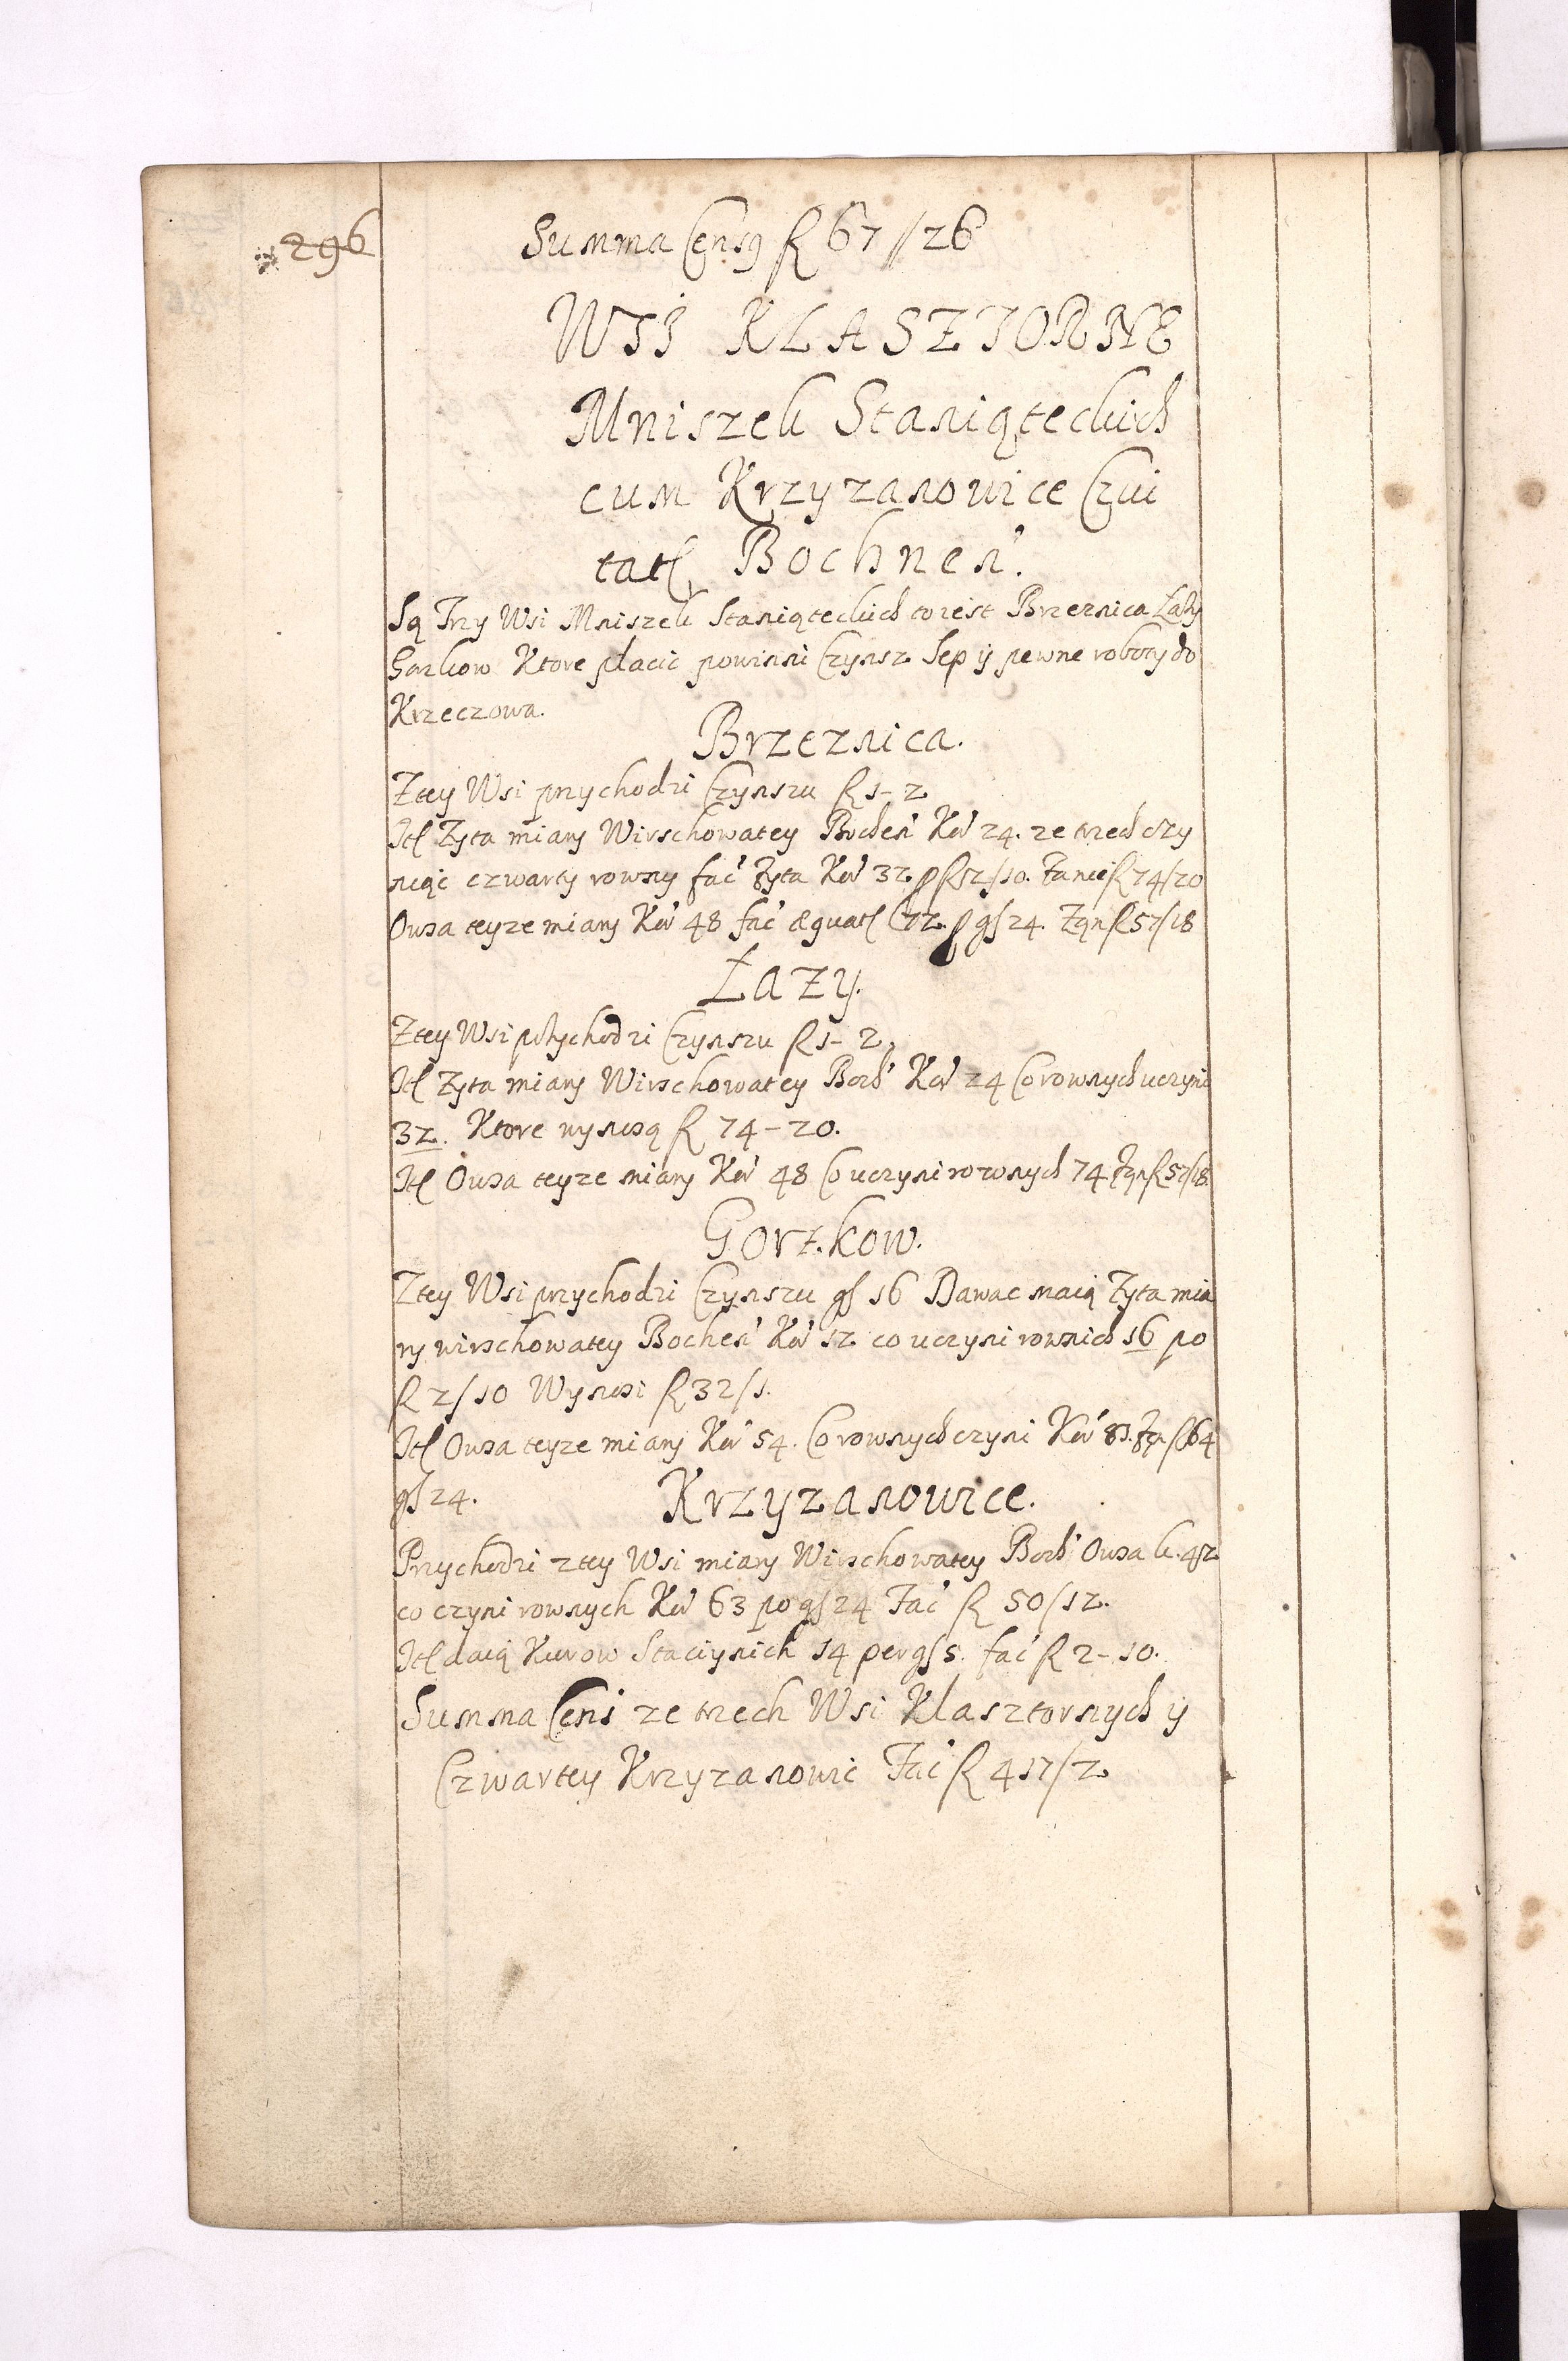 296
Summa Censg fl 67 // 26
WSI KLASZTORNE
Mniszek Staniąteckich
cum Krzyzanowice Czui
tat Bochnen
Są Trzy Wsi Mniszek Staniąteckich to iest Brzeznica Łazy
Gorkow Ktore płacic powinni Czynsz Sep ÿ pewne roboty do
Krzeczowa.
Brzeznica.
Ztey Wsi przychodzi Czynszu fl 1-2
It Zyta miary Wirschowatey Bochen Kor 24. ze trzech czy
niąc czwarty rowny fac Zyta Kor 32 p fl 2/10. fl 74/20
Owsa teyze miary Kor 48 fac æquat 72. p gs 24. fl 57/18
Łazy.
Ztey Wsi przychodzi Czynszu fl 1-2,
It Zyta miary Wirschowatey Boch Kor 24 Co rownych uczyni
32. Ktore wynoszą fl 74-20.
It Owsa teyze miary Kor 48 Co uczyni rownych 74 fl 57/18.
Gorzkow.
Ztey Wsi przychodzi Czynszu gs 16 Dawac maią Zyta mia
ry wirschowatey Bochen Kor 12 co uczyni rownich 16 po
fl 2/10 Wynosi fl 32/1.
It Owsa teyze miary Kor 54. Co rownych czyni Kor 81. fl 64
gs 24.
Krzyzanowice.
Przychodzi z tey Wsi miary Wirschowatey Boch Owsa k. 42
co czyni rownych Kor 63 po gs 24 Fac fl 50/12.
It daią Kurow Stacijnich 14 per gs 5. fac fl 2-10.
Summa Cens ze trzech Wsi Klasztornych ÿ
Czwartey Krzyzanowic Fac fl 417/2